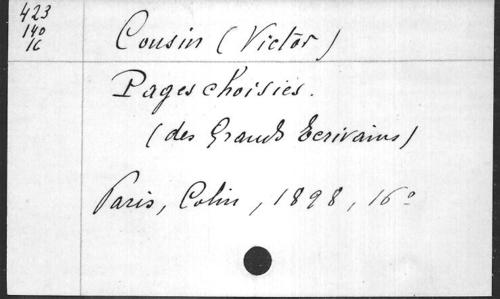 423
140
16
Cousin (Victor)
Pages choisies.
(des Grands Ecrivains)
Paris, Colin, 1898, 16º